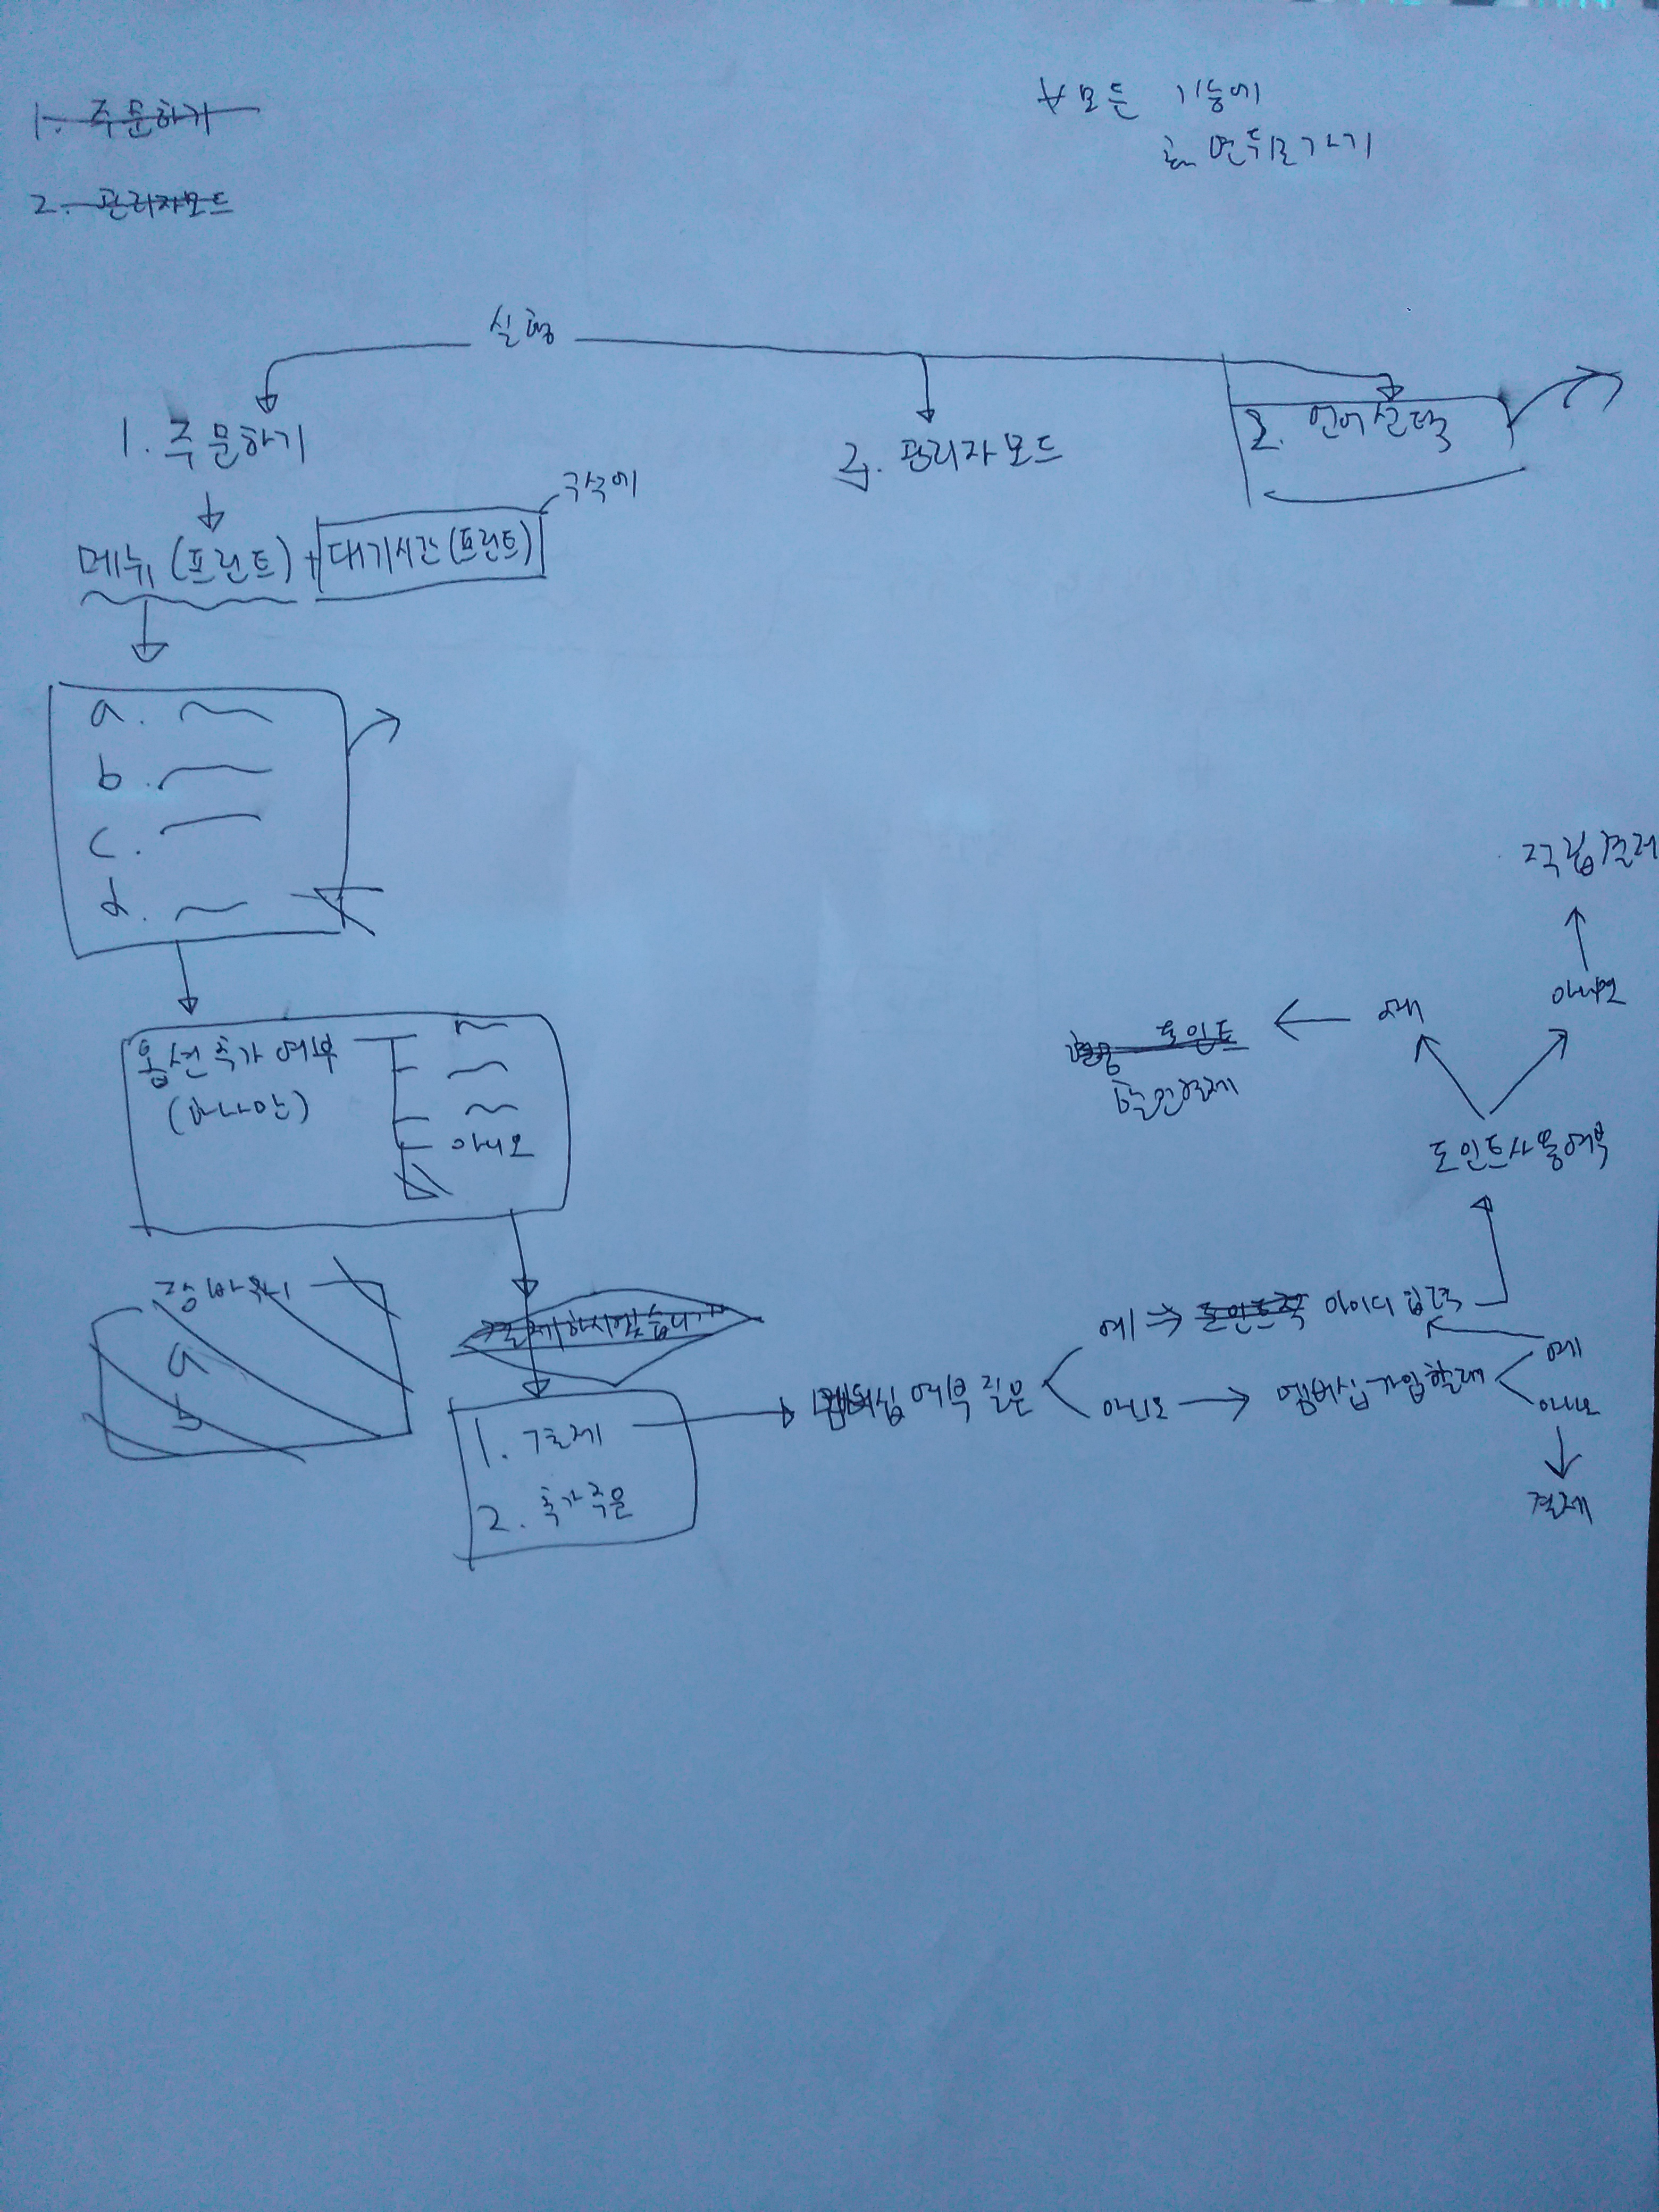 1. 주문하기
2. 관리자모드
모든 기능에
뒤로가기
실행
1. 주문하기
2. 관리자모드
2. 언어선택
구석에
메뉴 (프린트) + 대기시간(프린트)
a.
b.
c.
d.
옵션추가 여부
(하나만)
아니오
장바구니
a
b
결제하시겠습니까
1. 결제
2. 추가주문
멤버십 여부 질문
예 ⇒ 아이디 입력
아니오 → 멤버십가입할래
예
아니오
결제
포인트사용여부
예
아니오
포인트
할인결제
적립결제